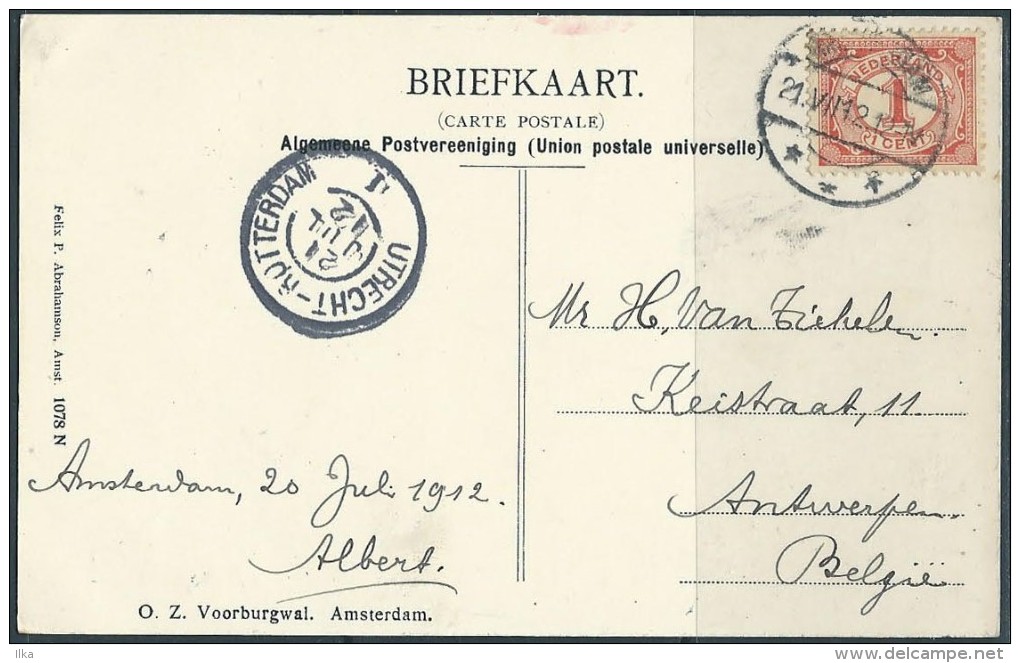 BRIEFKAART.
(CARTE POSTALE)
Algemeene Postvereeniging (Union postale universelle)
NEDERLAND
1
1 CENT
21.VII.12
UTRECHT-ROTTERDAM
Felix P. Abrahamson, Amst. 1078 N
Mr H. Van Zichelen.
Keistraat, 11.
Antwerpen.
België
Amsterdam, 20 Juli 1912.
Albert.
O. Z. Voorburgwal. Amsterdam.
Ilka
delcampe.net